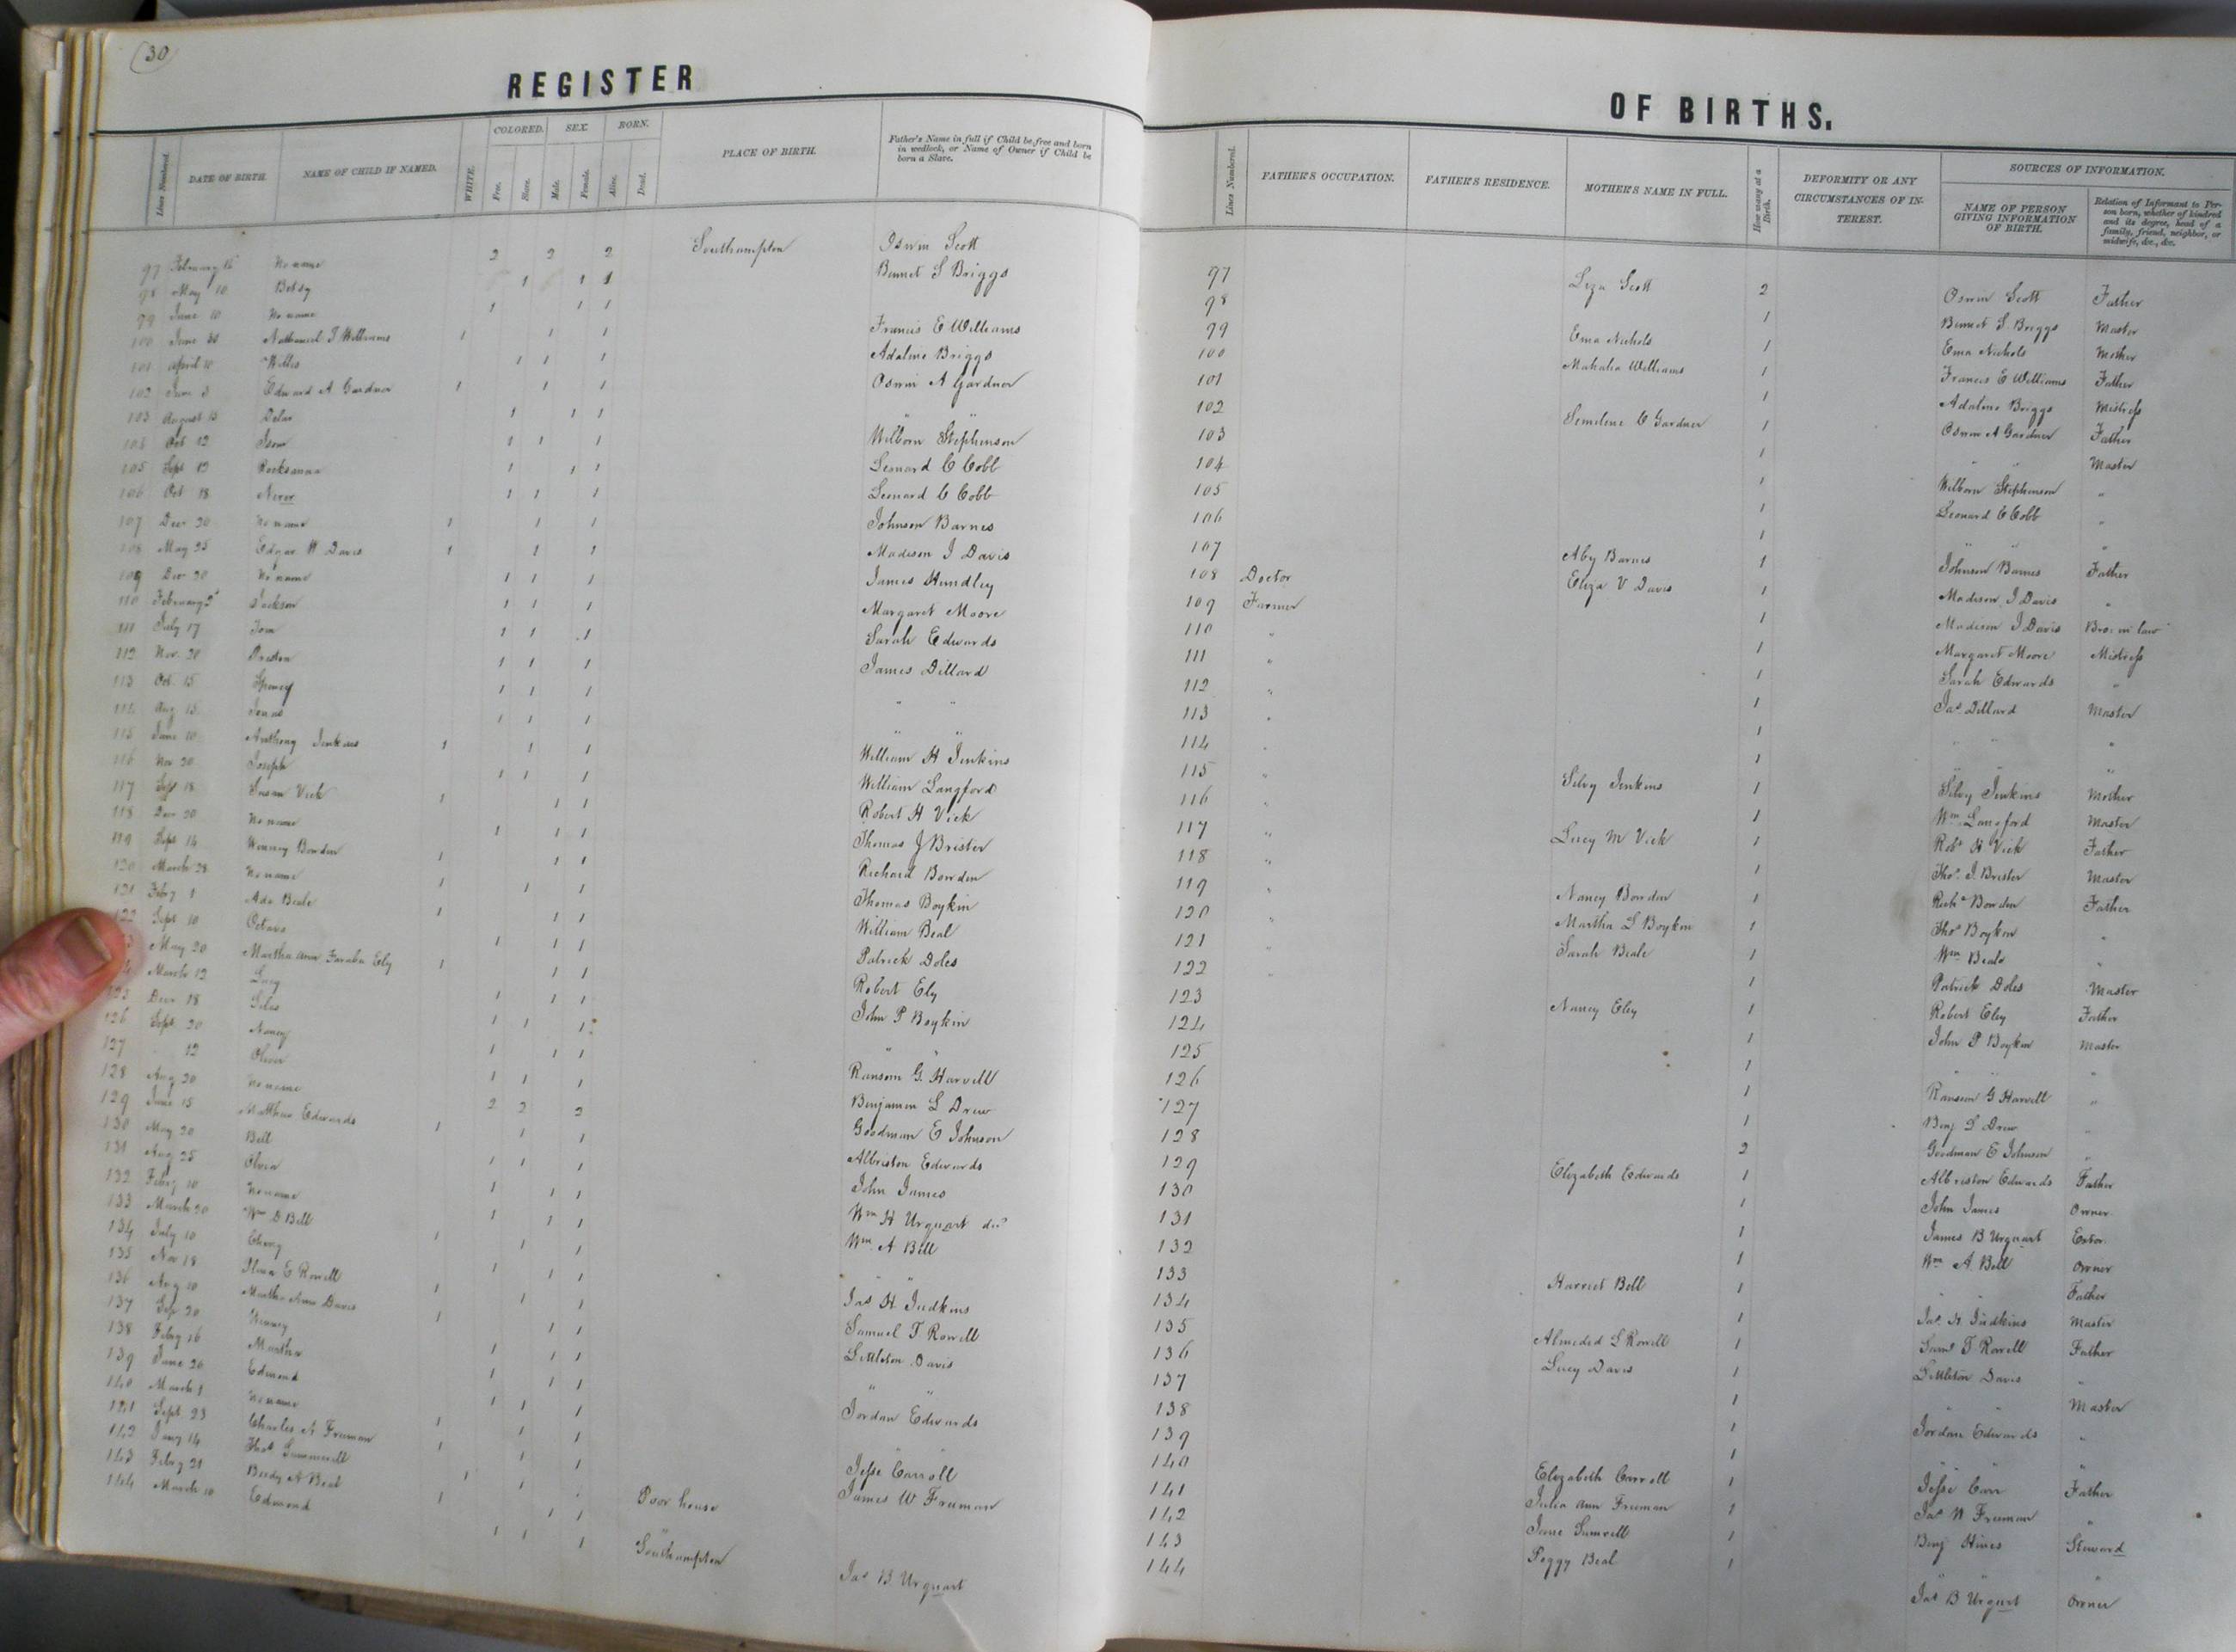 30
REGISTER
COLORED. SEX. BORN.
Lines Numbered. DATE OF BIRTH. NAME OF CHILD IF NAMED. WHITE. Free. Slave. Male. Female. Alive. Dead. PLACE OF BIRTH. Father's Name in full if Child be free and born in wedlock, or Name of Owner if Child be born a Slave.
97 February 15 No name 2 2 2 Southampton Oswin Scott
98 May 10 Betsy 1 1 1 Bennet S Briggs
99 June 10 No name 1 1 1
100 June 30 Nathaniel T Williams 1 1 1 Francis E Williams
101 April 10 Willis 1 1 1 Adaline Briggs
102 June 3 Edward A Gardner 1 1 1 Oswin A Gardner
103 August 15 1 1 1 " "
104 Oct 12 Isom 1 1 1 Wilborn Stephenson
105 Sept 12 Rocksanna 1 1 1 Leonard C Cobb
106 Oct 18 1 1 1 Leonard C Cobb
107 Dec 20 No name 1 1 1 Johnson Barnes
108 May 25 Edgar W Davis 1 1 1 Madison J Davis
109 Dec 20 No name 1 1 1 James Hundley
110 February Jackson 1 1 1 Margaret Moore
111 July 17 Tom 1 1 1 Sarah Edwards
112 Nov. 20 Preston 1 1 1 James Dillard
113 Oct. 15 1 1 1 " "
114 Aug 15 Jonas 1 1 1 " "
115 June 10 Anthony Jenkins 1 1 1 William H Jenkins
116 Nov 20 Joseph 1 1 1 William Langford
117 Sept 18 Susan Vick 1 1 1 Robert H Vick
118 Dec 20 No name 1 1 1 Thomas J Brister
119 Sept 14 Bowden 1 1 1 Richard Bowden
120 March 28 No name 1 1 1 Thomas Boykin
121 Feby 1 Ada Beale 1 1 1 William Beal
122 Sept 10 1 1 1 Patrick Doles
May 20 Martha Ann Ely 1 1 1 Robert Ely
March 12 Lucy 1 1 1 John P Boykin
125 Dec 18 Silas 1 1 1 " "
126 Sept 20 Nancy 1 1 1 Ransom G. Harvell
127 " 12 Oliver 1 1 1 Benjamin L Drew
128 Aug 20 No name 2 2 2 Goodman E Johnson
129 June 15 Matthew Edwards 1 1 1 Albriston Edwards
130 May 20 Bell 1 1 1 John James
131 Aug 25 1 1 1 Wm H Urquart
132 Feby 10 No name 1 1 1 Wm. A Bell
133 March 20 Wm D Bell 1 1 1 " "
134 July 10 1 1 1 Jas H Judkins
135 Nov 18 E Rowell 1 1 1 Samuel T Rowell
136 Aug 10 Martha Ann Davis 1 1 1 Littleton Davis
137 Sep 20 1 1 1 " "
138 Feby 16 Martha 1 1 1 Jordan Edwards
139 June 26 Edmond 1 1 1 " "
140 March 1 No name 1 1 1 Jesse Carroll
141 Sept 23 Charles A Freeman 1 1 1 James W Freeman
142 Jany 14 Thos 1 1 Poor house
143 Feby 21 A Beal 1 1 1 "
144 March 10 Edmond 1 1 1 Southampton Jas B Urquart
OF BIRTHS.
SOURCES OF INFORMATION.
Lines Numbered. FATHER'S OCCUPATION. FATHER'S RESIDENCE. MOTHER'S NAME IN FULL. How many at a Birth. DEFORMITY OR ANY CIRCUMSTANCES OF INTEREST. NAME OF PERSON GIVING INFORMATION OF BIRTH. Relation of Informant to Person born, whether of kindred and its degree, head of a family, friend, neighbor, or midwife, &c., &c.
97 Liza Scott 2 Oswin Scott Father
98 1 Bennet S. Briggs Master
99 Ema Nichols 1 Ema Nichols Mother
100 Mahalia Williams 1 Francis E Williams Father
101 1 Adaline Briggs Mistress
102 C Gardner 1 Oswin A Gardner Father
103 1 " " Master
104 1 Wilborn Stephenson "
105 1 Leonard C Cobb "
106 1 " " "
107 Aby Barnes 1 Johnson Barnes Father
108 Doctor Eliza V Davis 1 Madison J Davis "
109 Farmer 1 Madison J Davis Bro. in law
110 " 1 Margaret Moore Mistress
111 " 1 Sarah Edwards "
112 " 1 Jas Dillard Master
113 " 1 " " "
114 " 1 " " "
115 " Silvy Jenkins 1 Silvy Jenkins Mother
116 " 1 Wm Langford Master
117 " Lucy M Vick 1 Robt H Vick Father
118 " 1 Thos. J. Brister Master
119 " Nancy Bowden 1 Richd Bowden Father
120 " Martha L Boykin 1 Thos Boykin "
121 " Sarah Beale 1 Wm Beale "
122 " 1 Patrick Doles Master
123 Nancy Eley 1 Robert Eley Father
124 1 John P Boykin Master
125 1 " " "
126 1 Ransom G Harvell "
127 1 Benj L Drew "
128 2 Goodman E Johnson "
129 Elizabeth Edwards 1 Albriston Edwards Father
130 1 John James Owner
131 1 James B Urquart Extor
132 1 Wm A. Bell Owner
133 Harriet Bell 1 " " Father
134 1 Jas. H. Judkins Master
135 L Rowell 1 Saml T Rowell Father
136 Lucy Davis 1 Littleton Davis "
137 1 " " Master
138 1 Jordan Edwards "
139 1 " " "
140 Elizabeth Carroll 1 Jesse Carr Father
141 Julia Ann Freeman 1 Jas W Freeman "
142 Jane 1 Benj Hines Steward
143 Peggy Beal 1 " " "
144 Jas B Urqurt Owner